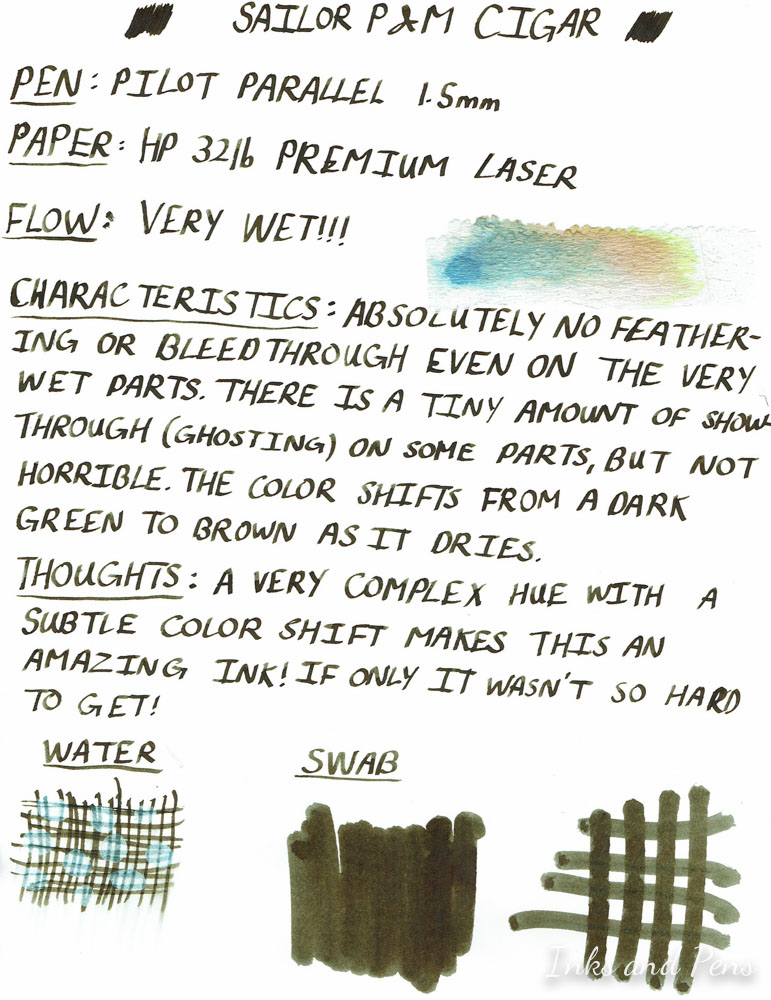 SAILOR P&M CIGAR
PEN: PILOT PARALLEL 1.5mm
PAPER: HP 32lb PREMIUM LASER
FLOW: VERY WET!!!
CHARACTERISTICS: ABSOLUTELY NO FEATHER-
ING OR BLEEDTHROUGH EVEN ON THE VERY
WET PARTS. THERE IS A TINY AMOUNT OF SHOW-
THROUGH (GHOSTING) ON SOME PARTS, BUT NOT
HORRIBLE. THE COLOR SHIFTS FROM A DARK
GREEN TO BROWN AS IT DRIES.
THOUGHTS: A VERY COMPLEX HUE WITH A
SUBTLE COLOR SHIFT MAKES THIS AN
AMAZING INK! IF ONLY IT WASN'T SO HARD
TO GET!
WATER SWAB
Inks and Pens